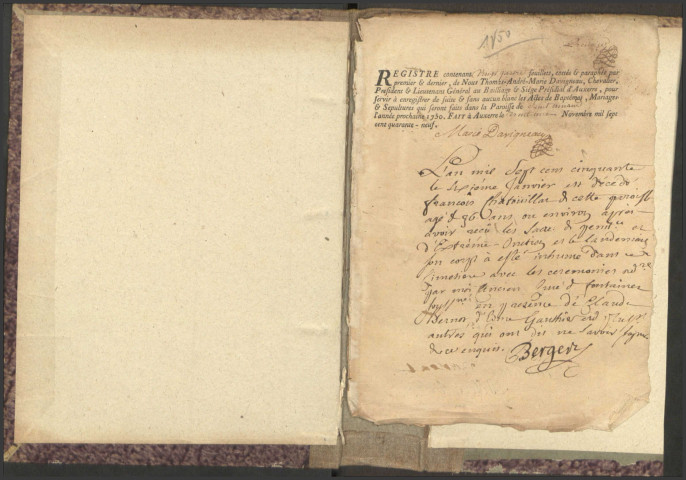 1750
REGISTRE contenant feuillets, cotés & paraphés par
premier & dernier, de Nous Thomas-André-Marie Davigneau, Chevalier,
Président & Lieutenant Général au Bailliage & Siége Présidial d'Auxerre, pour
servir à enregistrer de suite & sans aucun blanc les Actes de Baptêmes, Mariages
& Sepultures qui seront faits dans la Paroisse de
l'année prochaine 1750. FAIT à Auxerre le Novembre mil sept
cent quarante-neuf.
Marie Davigneau
L'an mil Sept cens cinquante
le sixième Janvier est décédé
françois de cette paroisse
agé de 36 ans ou environ après
avoir reçu les Sacr. de penit.ce et
d'Extrême Onction et le landemain
son corps à esté inhumé dans ce
cimetiere avec les ceremonies ord.res
par moi curé de fontaines
en présence de Claude
Gauthier et
autres qui ont dit ne savoir signer
de ce enquis. Berger